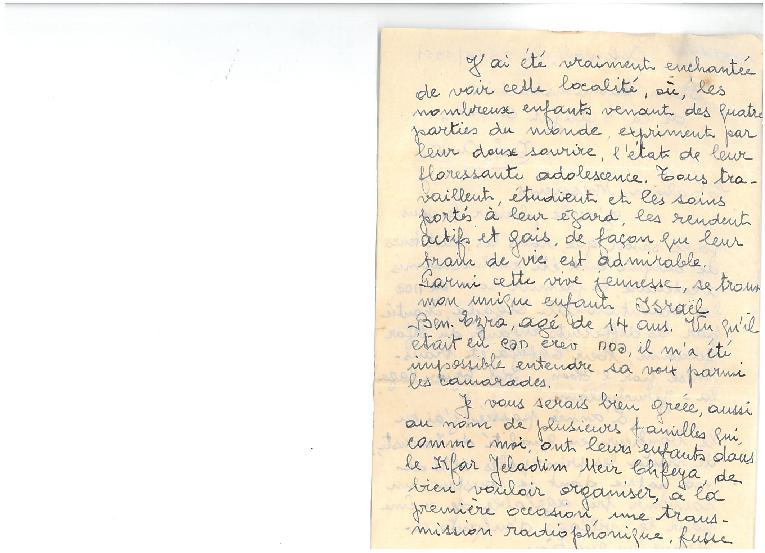 J'ai été vraiment enchantée
de voir cette localité, où, les
nombreux enfants venant des quatre
parties du monde, expriment par
leur doux sourire, l'état de leur
floressante adolescence. Tous tra-
vaillent, étudient et les soins
portés à leur égard, les rendent
actifs et gais, de façon que leur
train de vie est admirable.
Parmi cette vive jeunesse, se trouve
mon unique enfant Israël
Ben-Ezra, agé de 14 ans. Vu qu'il
était en erev פסח, il m'a été
impossible entendre sa voix parmi
les camarades.
Je vous serais bien gréée, aussi
au nom de plusieurs familles qui,
comme moi, ont leurs enfants dans
le Kfar Jeladim Meir Chfeya, de
bien vouloir organiser, à la
première occasion, une trans-
mission radiophonique, fusse